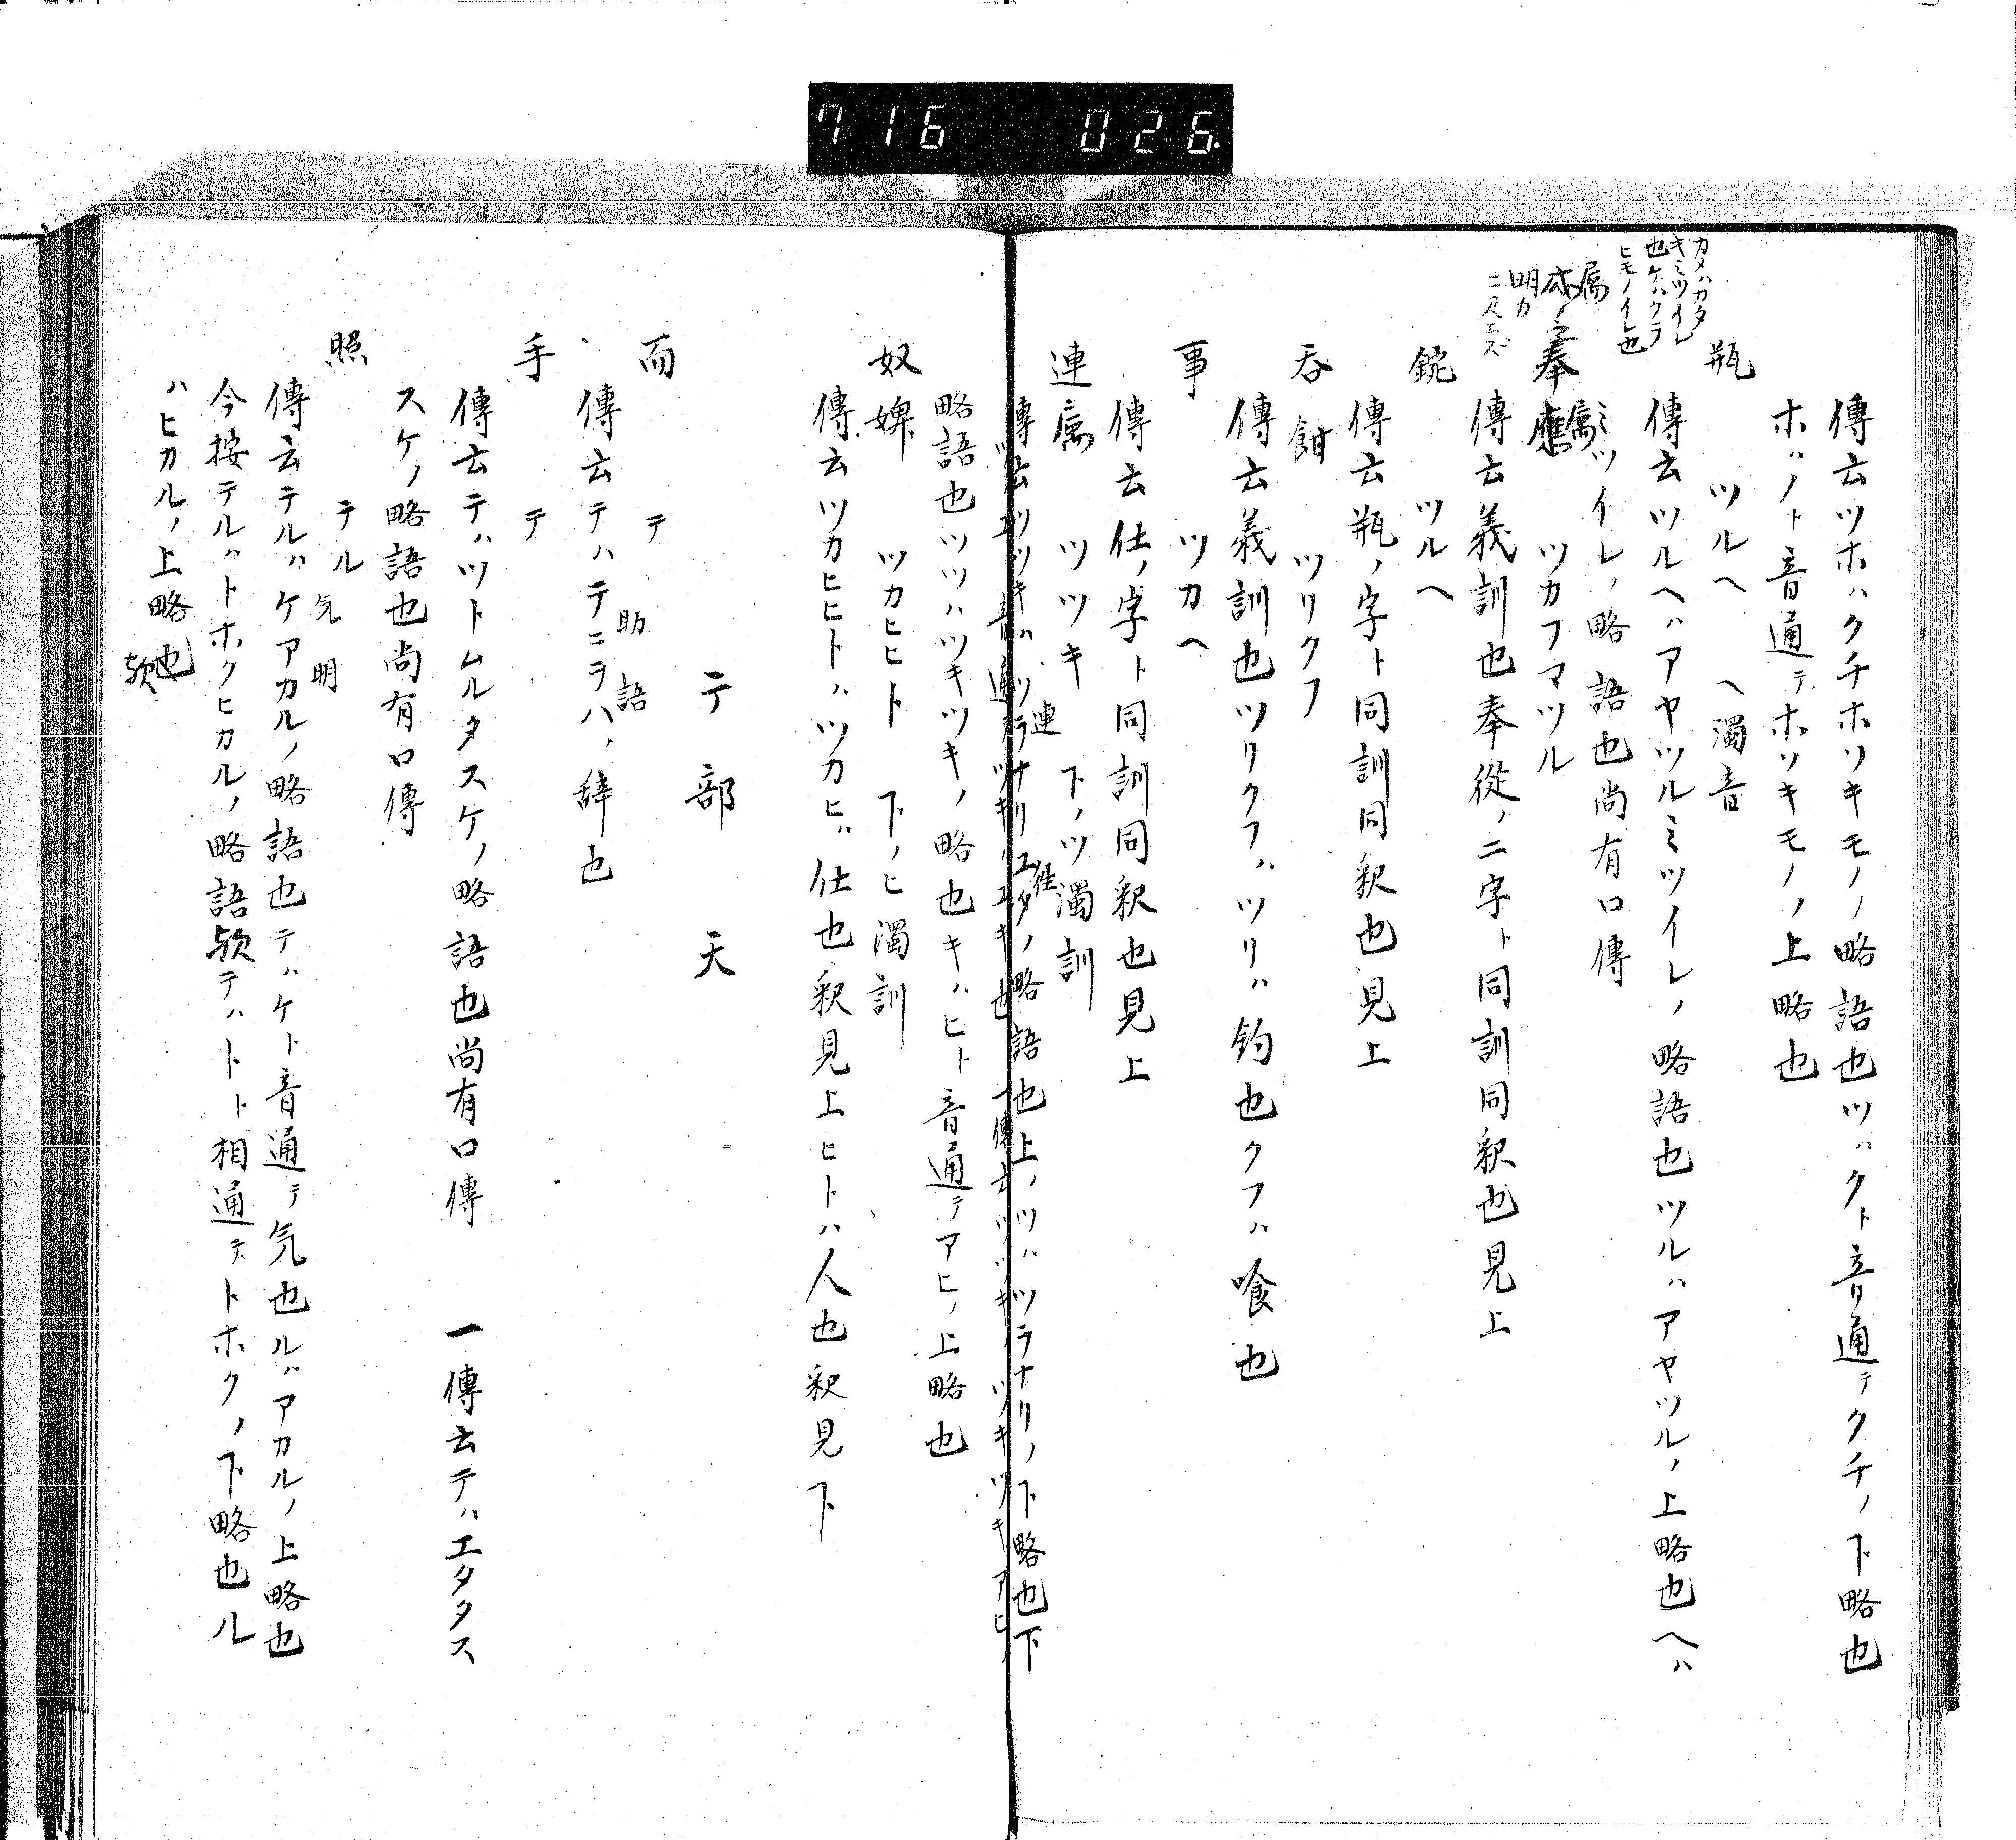 716 026
傳云ツホハクチホソキモノノ略語也ツハクト音通テクチノ下略也
ホハノト音通テホソキモノノ上略也
瓶 ツルヘ ヘ濁音
カメハカタ
キミツイレ
也ケハクラ
ヒモノイレ也
傳云ツルヘハアヤツルミツイレノ略語也ツルハアヤツルノ上略也ヘハ
ミツイレノ略語也尚有口傳
属
本ノ
明カ
ニ見エズ
奉 ツカフマツル
傳云義訓也奉從ノ二字ト同訓同釈也見上
鋺 ツルヘ
傳云瓶ノ字ト同訓同釈也見上
呑鉗 ツリクフ
傳云義訓也ツリクフハツリハ釣也クフハ喰也
事 ツカヘ
傳云仕ノ字ト同訓同釈也見上
連属 ツツキ 連 下ノツ濁訓
傳云ツツキハツラナリユクノ略語也上ノツハツラナリノ下略也下
略語也ツツハツキツキノ略也キハヒト音通テアヒノ上略也
奴婢 ツカヒヒト 下ノヒ濁訓
傳云ツカヒヒトハツカヒハ仕也釈見上ヒトハ人也釈見下
テ部 天
而 テ 助語
傳云テハテニヲハノ辞也
手 テ
傳云テハツトムルタスケノ略語也尚有口傳 一傳云テハエタタス
スケノ略語也尚有口傳
照 テル 気明
傳云テルハケアカルノ略語也テハケト音通テ気也ルハアカルノ上略也
今按テルハトホクヒカルノ略語欤テハトト相通テトホクノ下略也ル
ハヒカルノ上略也欤